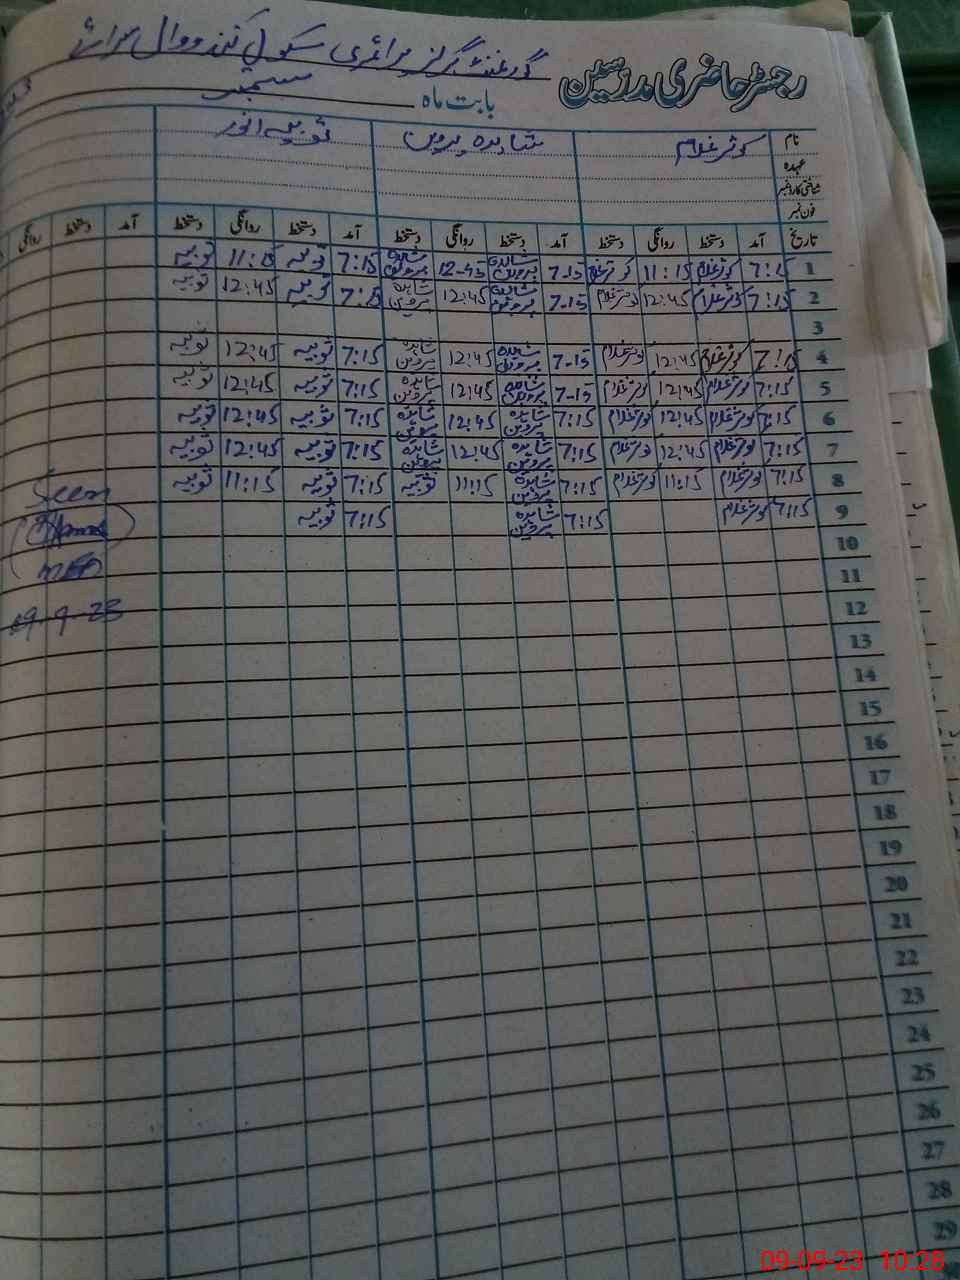 رجسٹر حاضری مدرسین گورنمنٹ گرلز پرائمری سکول
بابت ماہ ستمبر
نام کوثر غلام شاہدہ پروین ثوبیہ انور
عہدہ
شناختی کارڈ نمبر
فون نمبر
تاریخ آمد دستخط روانگی دستخط آمد دستخط روانگی دستخط آمد دستخط روانگی دستخط آمد دستخط روانگی
1 7:15 کوثر غلام 11:15 کوثر غلام 7-15 شاہدہ پروین 12-45 شاہدہ پروین 7:15 ثوبیہ 11:15 ثوبیہ
2 7:15 کوثر غلام 12:45 کوثر غلام 7-15 شاہدہ پروین 12:45 شاہدہ پروین 7:15 ثوبیہ 12:45 ثوبیہ
3
4 7:15 کوثر غلام 12:45 کوثر غلام 7-15 شاہدہ پروین 12:45 شاہدہ پروین 7:15 ثوبیہ 12:45 ثوبیہ
5 7:15 کوثر غلام 12:45 کوثر غلام 7-15 شاہدہ پروین 12:45 شاہدہ پروین 7:15 ثوبیہ 12:45 ثوبیہ
6 7:15 کوثر غلام 12:45 کوثر غلام 7:15 شاہدہ پروین 12:45 شاہدہ پروین 7:15 ثوبیہ 12:45 ثوبیہ
7 7:15 کوثر غلام 12:45 کوثر غلام 7:15 شاہدہ پروین 12:45 شاہدہ پروین 7:15 ثوبیہ 12:45 ثوبیہ
8 7:15 کوثر غلام 11:15 کوثر غلام 7:15 شاہدہ پروین 11:15 ثوبیہ 7:15 ثوبیہ 11:15 ثوبیہ
9 7:15 کوثر غلام 7:15 شاہدہ پروین 7:15 ثوبیہ
Seen
9-9-23
10
11
12
13
14
15
16
17
18
19
20
21
22
23
24
25
26
27
28
29
09-09-23 10:28